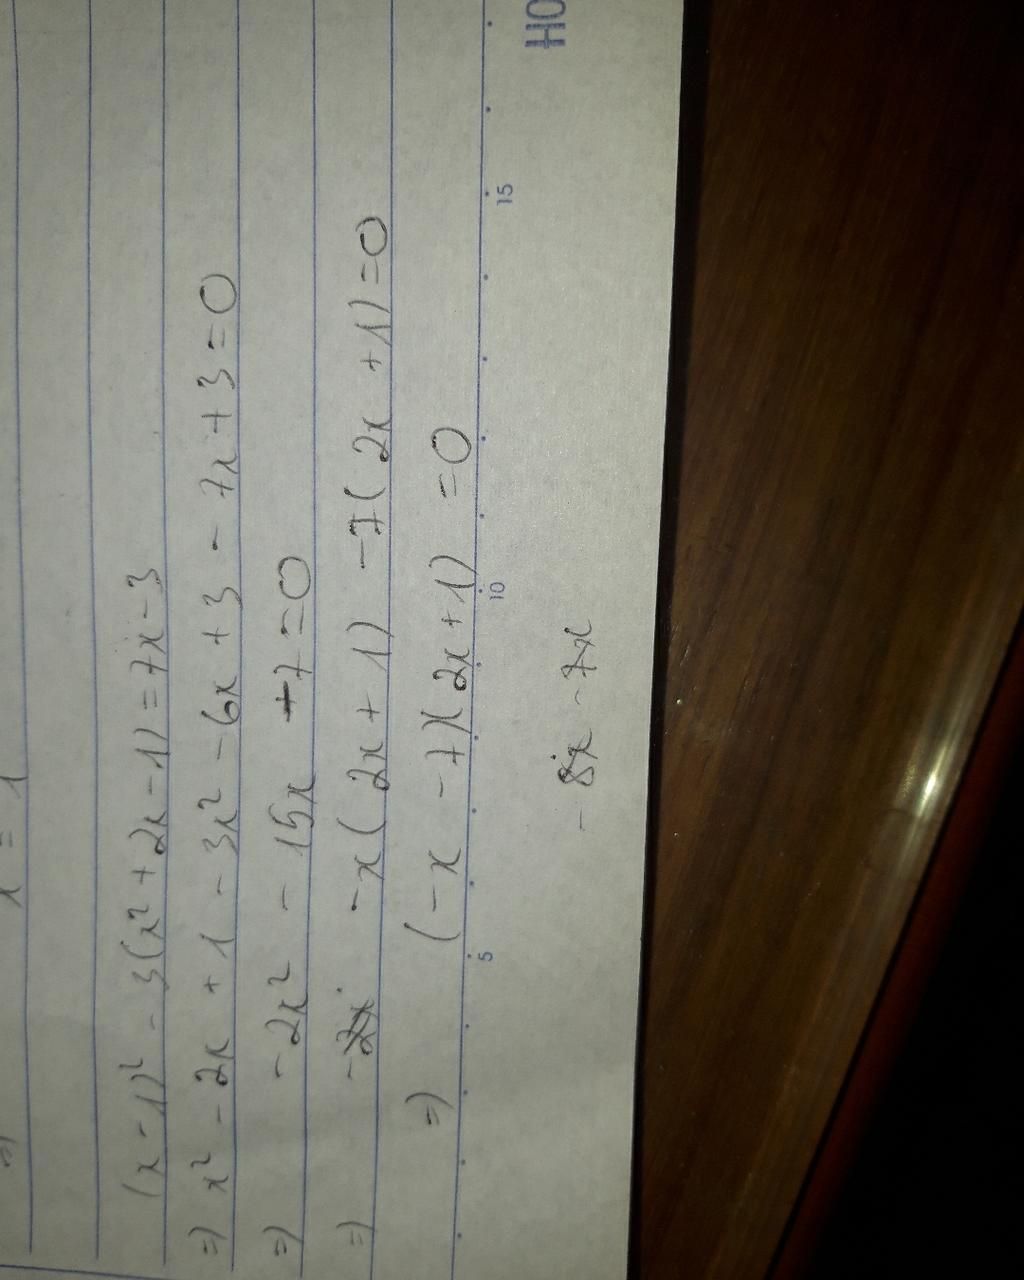 =) x = 1
(x - 1)² - 3(x² + 2x - 1) = 7x - 3
=) x² - 2x + 1 - 3x² - 6x + 3 - 7x + 3 = 0
=) -2x² - 15x +7 = 0
=) -x(2x + 1) -7(2x + 1) = 0
=) (-x -7)(2x+1) = 0
5 10 15
HO
- 8x - 7x